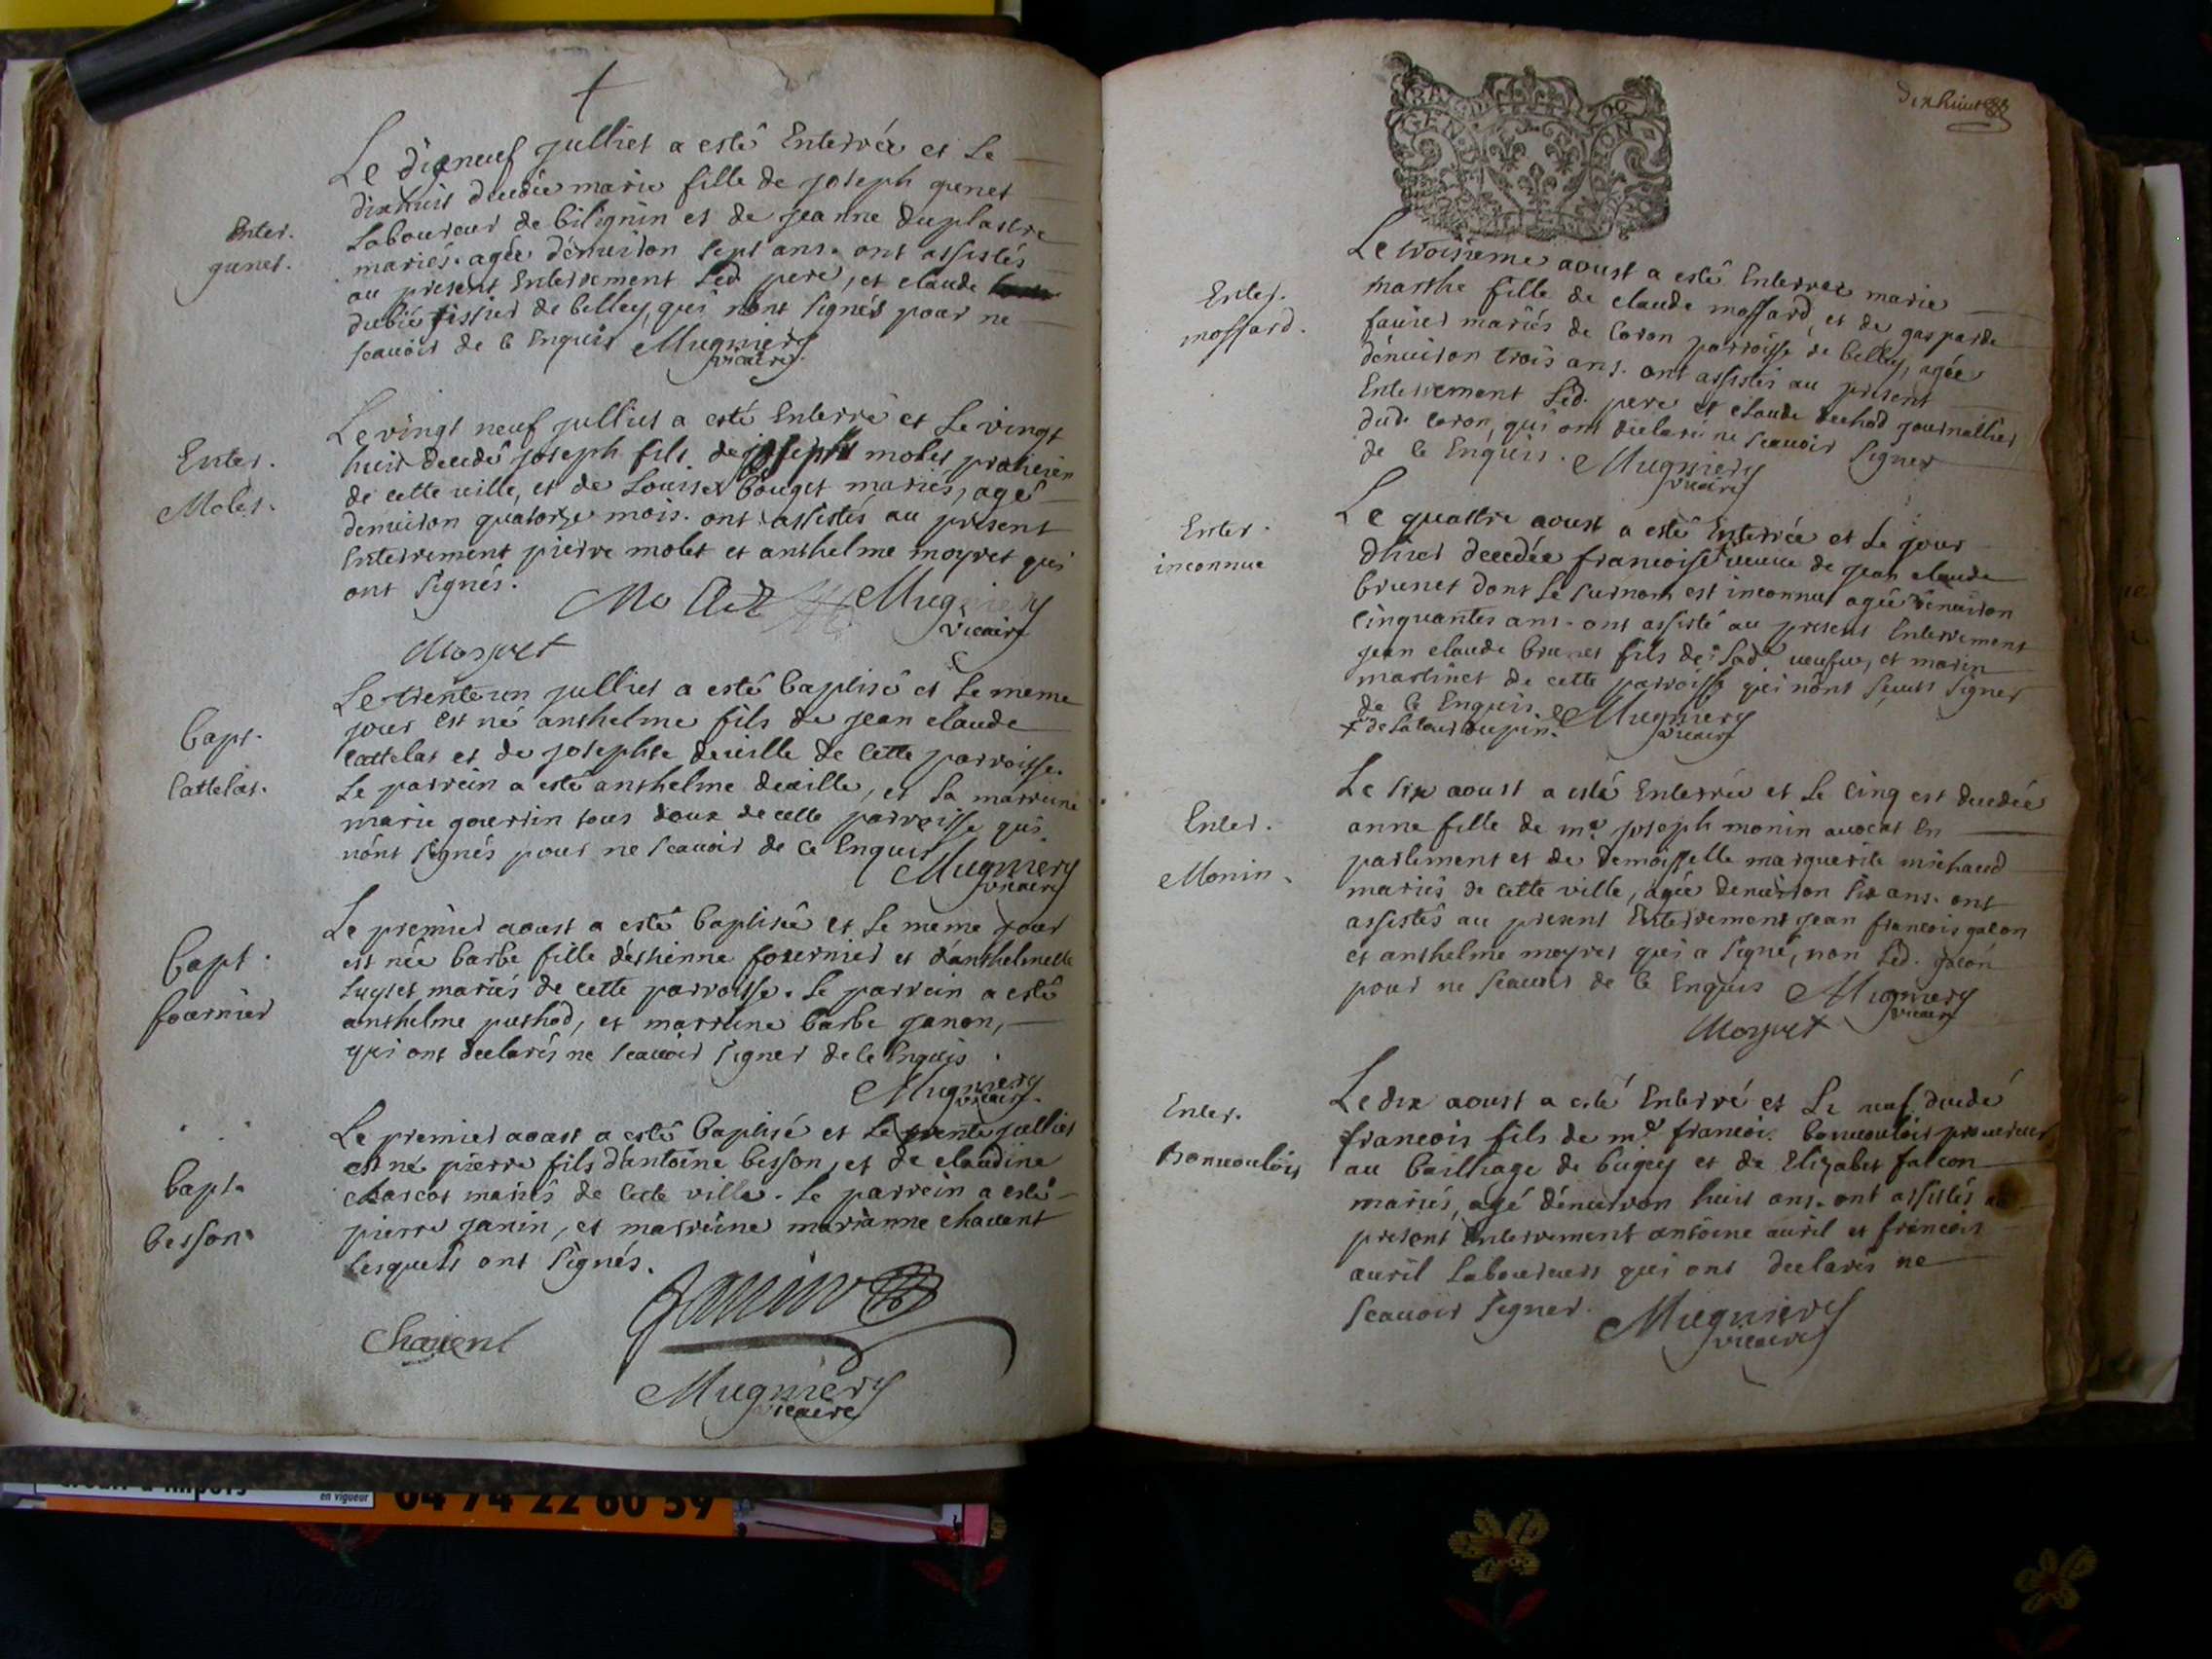 Le dixneuf julliet a esté Enterrée et Le
dixhuit decedée marie fille de joseph genet
Laboureur de bilignin et de jeanne duplastre
Enter.
genet.
mariés. agée d'environ sept ans. ont assistés
au present Enterrement Led. pere, et claude
dubié tissier de belley, qui n'ont signés pour ne
scauoir de ce Enquis Mugniery
vicaire
Le vingt neuf julliet a esté Enterré et Le vingt
Enter.
Molet.
huit decedé joseph fils de joseph molet praticien
de cette ville, et de Louise bouget mariés, agé
denuiron quatorze mois. ont assistés au present
Enterrement pierre molet et anthelme moyret qui
ont signés.
Mollet Mugniery
vicaire
Moyret
Le trente un julliet a esté baptisé et Le meme
Bapt.
Cattelat.
jour est né anthelme fils de jean claude
Cattelat et de josephte deville de cette parroisse.
Le parrein a esté anthelme deville, et La marreine
marie gouttin tous deux de cette parroisse qui
n'ont signés pour ne scauoir de ce Enquis
Mugniery
vicaire
Le premier aoust a esté baptisée et Le meme jour
Bapt.
fournier
est née barbe fille d'esthienne fournier et d'anthelmette
Luyset mariés de cette parroisse. Le parrein a esté
anthelme puthod, et marreine barbe ganon,
qui ont declarés ne scauoir signer de ce Enquis
Mugniery
vicaire.
Le premier aoust a esté baptisé et Le trente julliet
Bapt.
besson
est né pierre fils d'antoine besson, et de claudine
chascot mariés de cette ville. Le parrein a esté
pierre janin, et marreine marianne chauent
lesquels ont signés.
Janin
Chauent
Mugniery
vicaire
dixhuit
GEN
Le troisieme aoust a esté Enterree marie
Enter.
mossard.
marthe fille de claude mossard, et de gasparde
fauier mariés de Coron parroisse de belley, agée
d'enuiron trois ans. ont assistés au present
Enterrement Led. pere et claude dechod journallier
dud. Coron, qui ont declaré ne scauoir signer
de ce Enquis. Mugniery
vicaire
Le quattre aoust a esté Enterrée et Le jour
Enter.
inconnue
d'hier decedée francoise veuue de jean claude
brunet dont Le surnom est inconnut agée d'enuiron
Cinquantes ans. ont assisté au present Enterrement
jean claude brunet fils de Lad. ueufue, et marin
martinet de cette parroisse qui n'ont sçeuts signer
de ce Enquis. Mugniery
vicaire
+ de Latour dupin.
Le six aoust a esté Enterrée et Le Cinq est decedée
Enter.
Monin.
anne fille de me. joseph monin auocat En
parlement et de demoisselle marguerite michaud
mariés de cette ville, agée denuiron six ans. ont
assistés au present Enterrement jean francois galon
et anthelme moyret qui a signé, non Led. galon
pour ne scauoir de ce Enquis Mugniery
vicaire
Moyret
Le dix aoust a esté Enterré et Le neuf decedé
Enter.
francois fils de me. francois procureur
au bailliage de bugey et de Elizabet falcon
mariés, agé d'enuiron huit ans. ont assistés au
present Enterrement antoine auril et francois
auril Laboureurs qui ont declarés ne
scauoir signer. Mugniery
vicaire
en vigueur
04 74 22 60 59